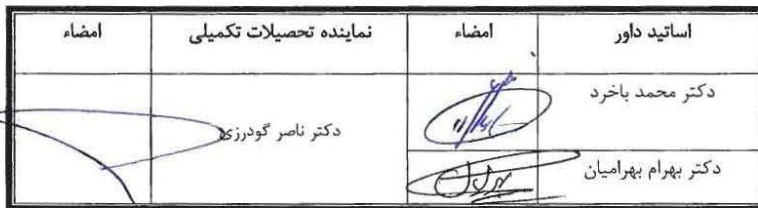 اساتید داور امضاء نماینده تحصیلات تکمیلی امضاء
دکتر محمد باخرد
دکتر ناصر گودرزی
دکتر بهرام بهرامیان